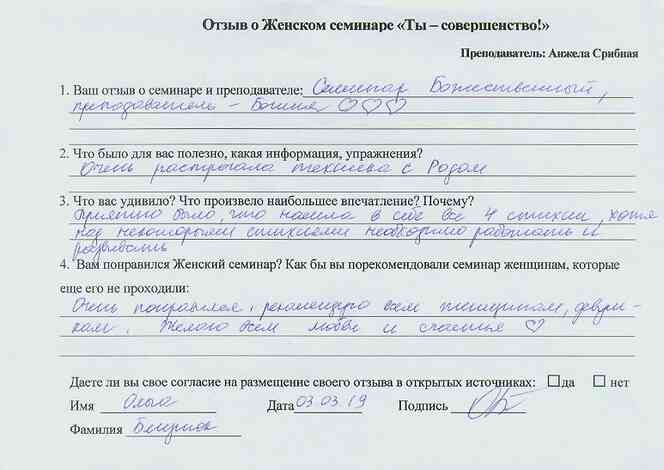 Отзыв о Женском семинаре «Ты – совершенство!»
Преподаватель: Анжела Срибная
1. Ваш отзыв о семинаре и преподавателе: Семинар Божественный,
преподаватель – Богиня ♡♡♡
2. Что было для вас полезно, какая информация, упражнения?
Очень растрогала техника с Родом
3. Что вас удивило? Что произвело наибольшее впечатление? Почему?
Приятно было, что нашла в себе все 4 стихии, хотя
над некоторыми стихиями необходимо работать и
развивать
4. Вам понравился Женский семинар? Как бы вы порекомендовали семинар женщинам, которые
еще его не проходили:
Очень понравился, рекомендую всем женщинам, девуш-
кам. Желаю всем любви и счастья ♡
Даете ли вы свое согласие на размещение своего отзыва в открытых источниках: ☐ да ☐ нет
Имя Ольга Дата 03 03 19 Подпись
Фамилия